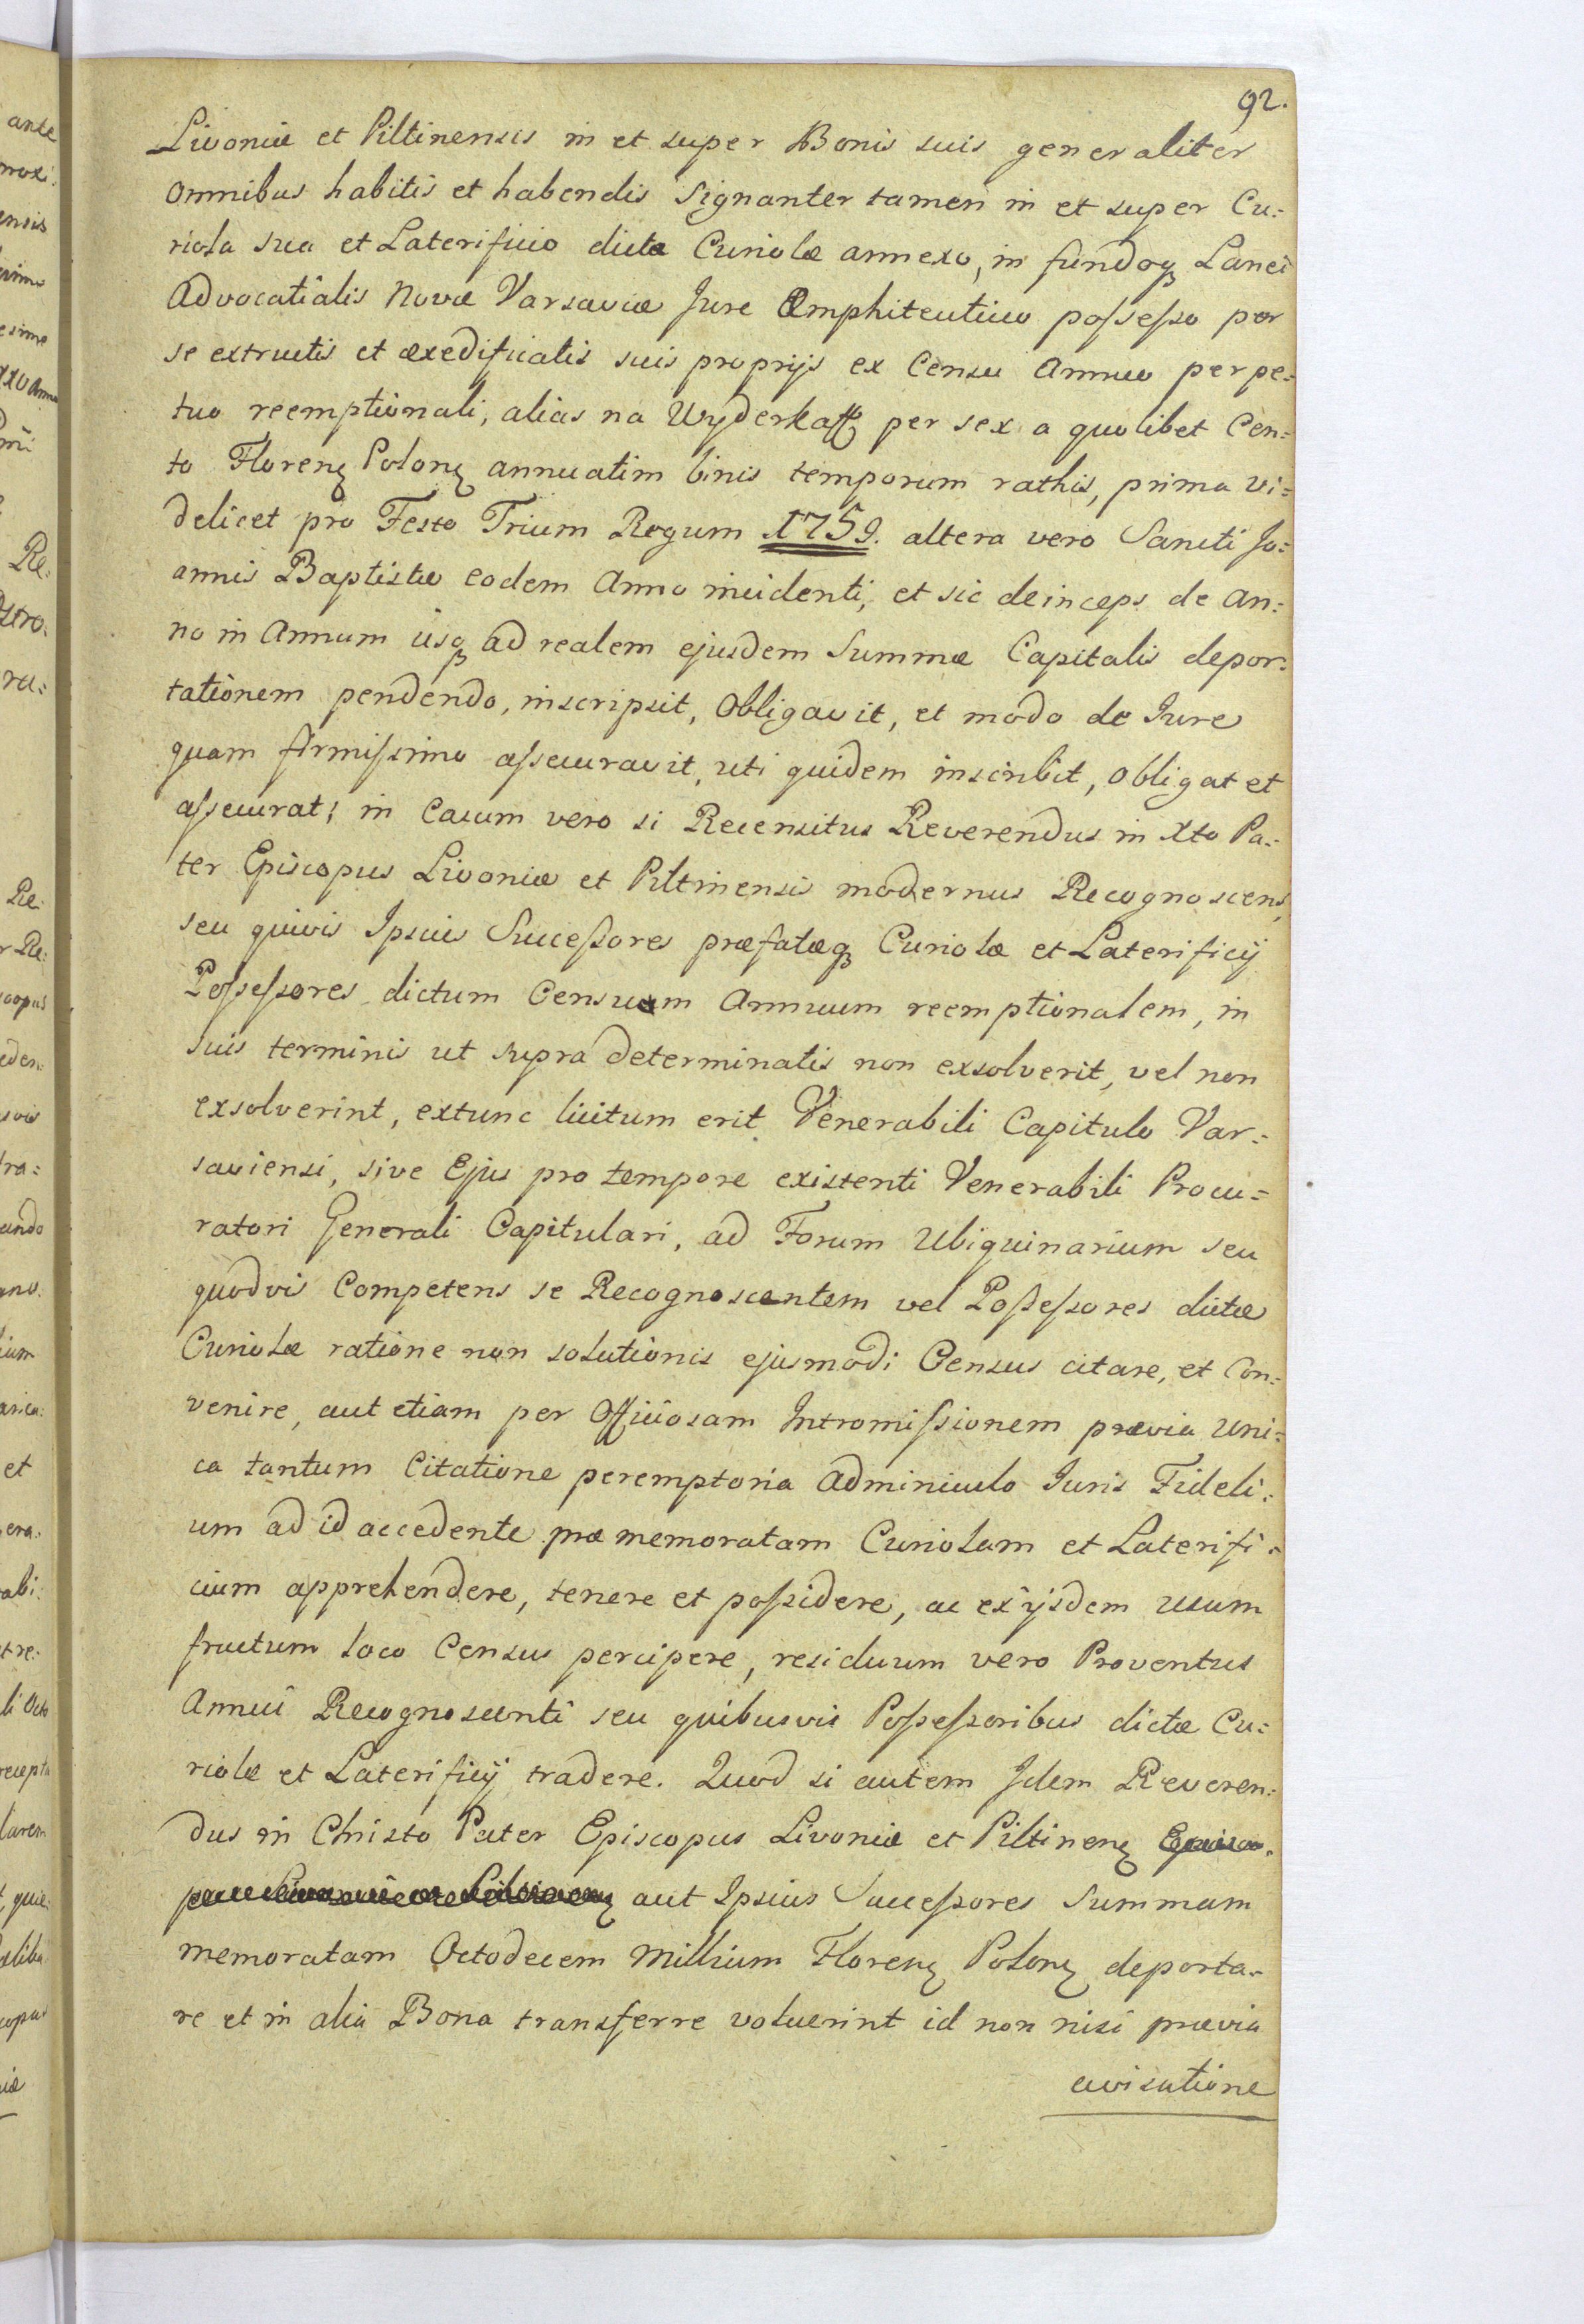 92.
Livoniæ et Piltinensis in et super Bonis suis generaliter
omnibus habitis et habendis signanter tamen in et super Cu=
riola sua et Laterificio dictæ Curiolæ annexo, in fundoq Lanei
Advocatialis Novæ Varsaviæ Jure Emphiteutico possesso per
se extructis et exedificatis suis proprijs ex Censu Annuo perpe=
tuo reemptionali, alias na Wyderkaff per sex a quolibet Cen=
to Floren Polon annuatim binis temporum rathis, prima vi=
delicet pro Festo Trium Regum 1759. altera vero Sancti Jo=
annis Baptistæ eodem Anno incidenti, et sic deinceps de An=
no in Annum usq ad realem ejusdem Summæ Capitalis depor=
tationem pendendo, inscripsit, Obligavit, et modo de Jure
quam firmissimo assecuravit, uti quidem inscribit, obligat et
assecurat; in Casum vero si Recensitus Reverendus in Xto Pa=
ter Episcopus Livoniæ et Piltinensis modernus Recognoscens,
seu quivis Ipsius Successores præfatæq Curiolæ et Laterificij
Possessores dictum Censum Annuum reemptionalem, in
suis terminis ut supra determinatis non exsolverit, vel non
exsolverint, extunc licitum erit Venerabili Capitulo Var=
saviensi, sive Ejus pro tempore existenti Venerabili Procu=
ratori Generali Capitulari, ad Forum Ubiquinarium seu
quodvis Competens se Recognoscentem vel Possessores dictæ
Curiolæ ratione non solutionis ejusmodi Census citare, et Con=
venire, aut etiam per Officiosam Intromissionem prævia uni=
ca tantum Citatione peremptoria Adminiculo Juris Fideli=
um ad id accedente præmemoratam Curiolam et Laterifi=
cium apprehendere, tenere et possidere, ac ex ijsdem usum
fructum loco Census percipere, residuum vero Proventus
Annui Recognoscenti seu quibusvis Possessoribus dictæ Cu=
riolæ et Laterificij tradere. Quod si autem Idem Reveren=
dus in Christo Pater Episcopus Livoniæ et Piltinen
aut Ipsius Successores Summam
memoratam Octodecem Millium Floren Polon deporta=
re et in alia Bona transferre voluerint id non nisi prævia
avisatione